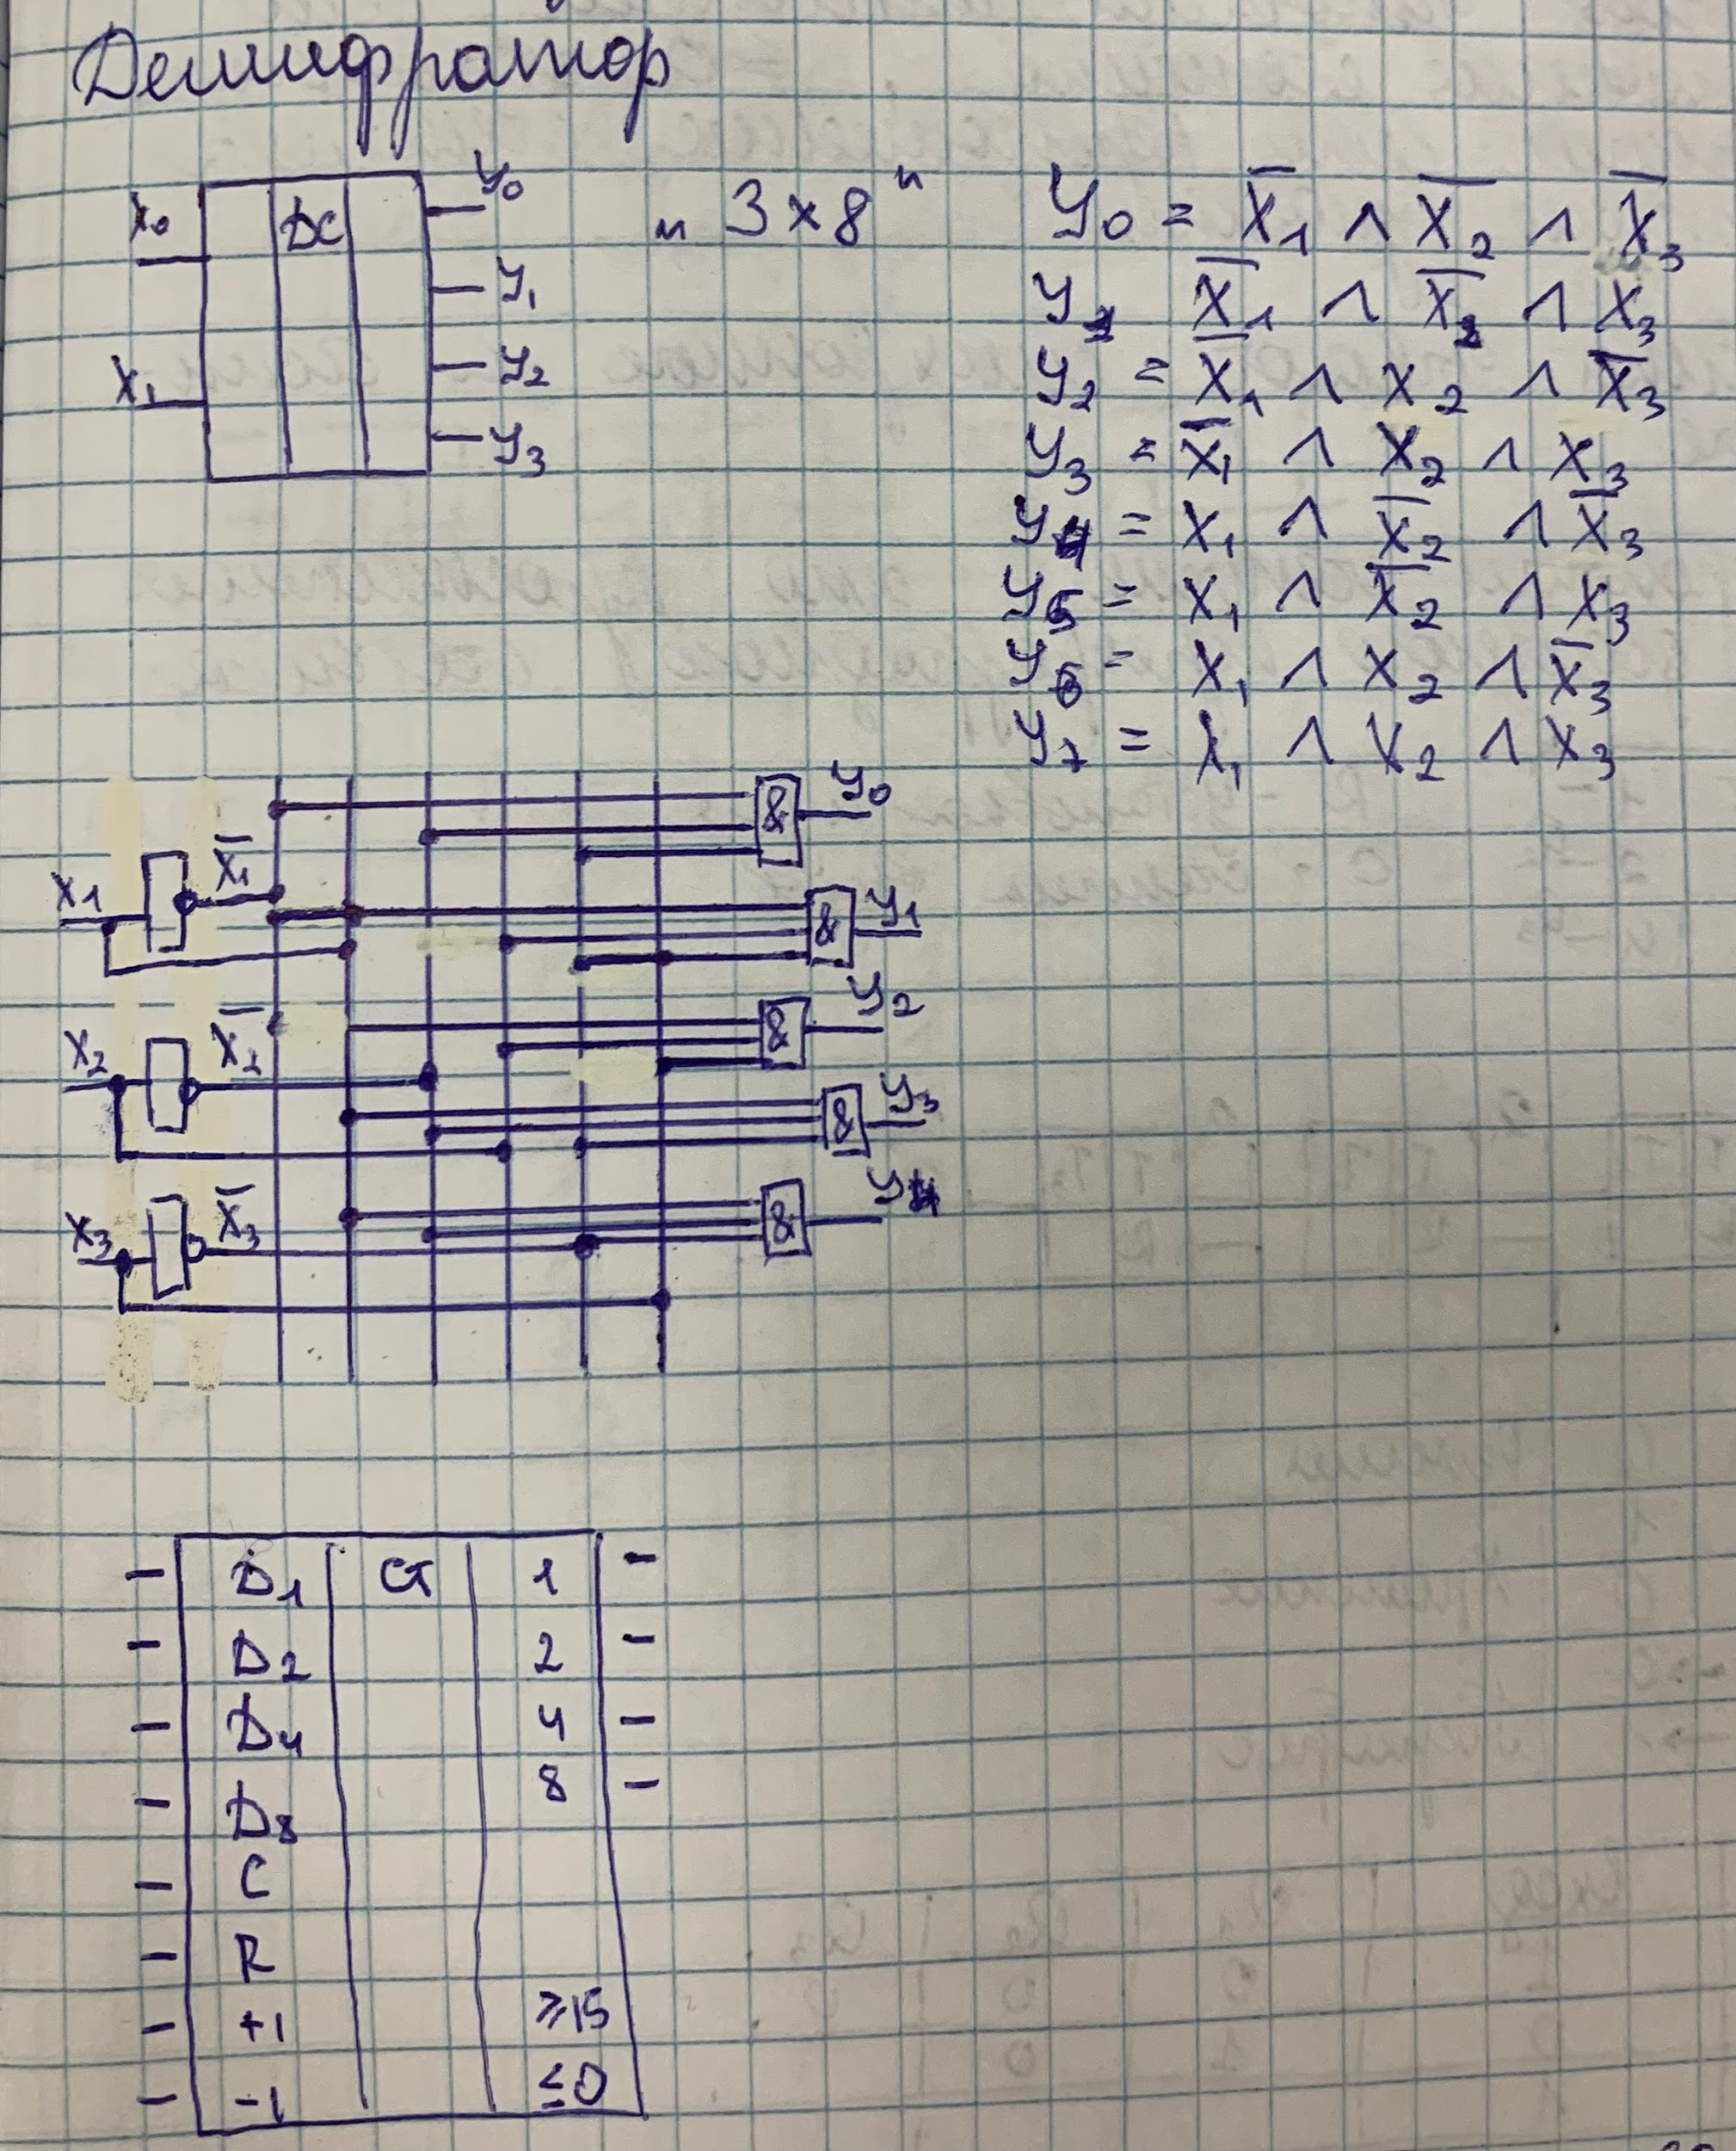 Дешифратор
X0 DC y0
y1
X1 y2
y3
„ 3 x 8 "
y0 = X̅1 ∧ X̅2 ∧ X̅3
y1 X̅1 ∧ X̅2 ∧ X3
y2 = X̅1 ∧ X2 ∧ X̅3
y3 = X̅1 ∧ X2 ∧ X3
y4 = X1 ∧ X̅2 ∧ X̅3
y5 = X1 ∧ X̅2 ∧ X3
y6 = X1 ∧ X2 ∧ X̅3
y7 = X1 ∧ X2 ∧ X3
& y0
X1 X̅1 & y1
X2 X̅2 & y2
& y3
X3 X̅3 & y4
D1 CT 1
D2 2
D4 4
D8 8
C
R
+1 ≥15
-1 ≤0